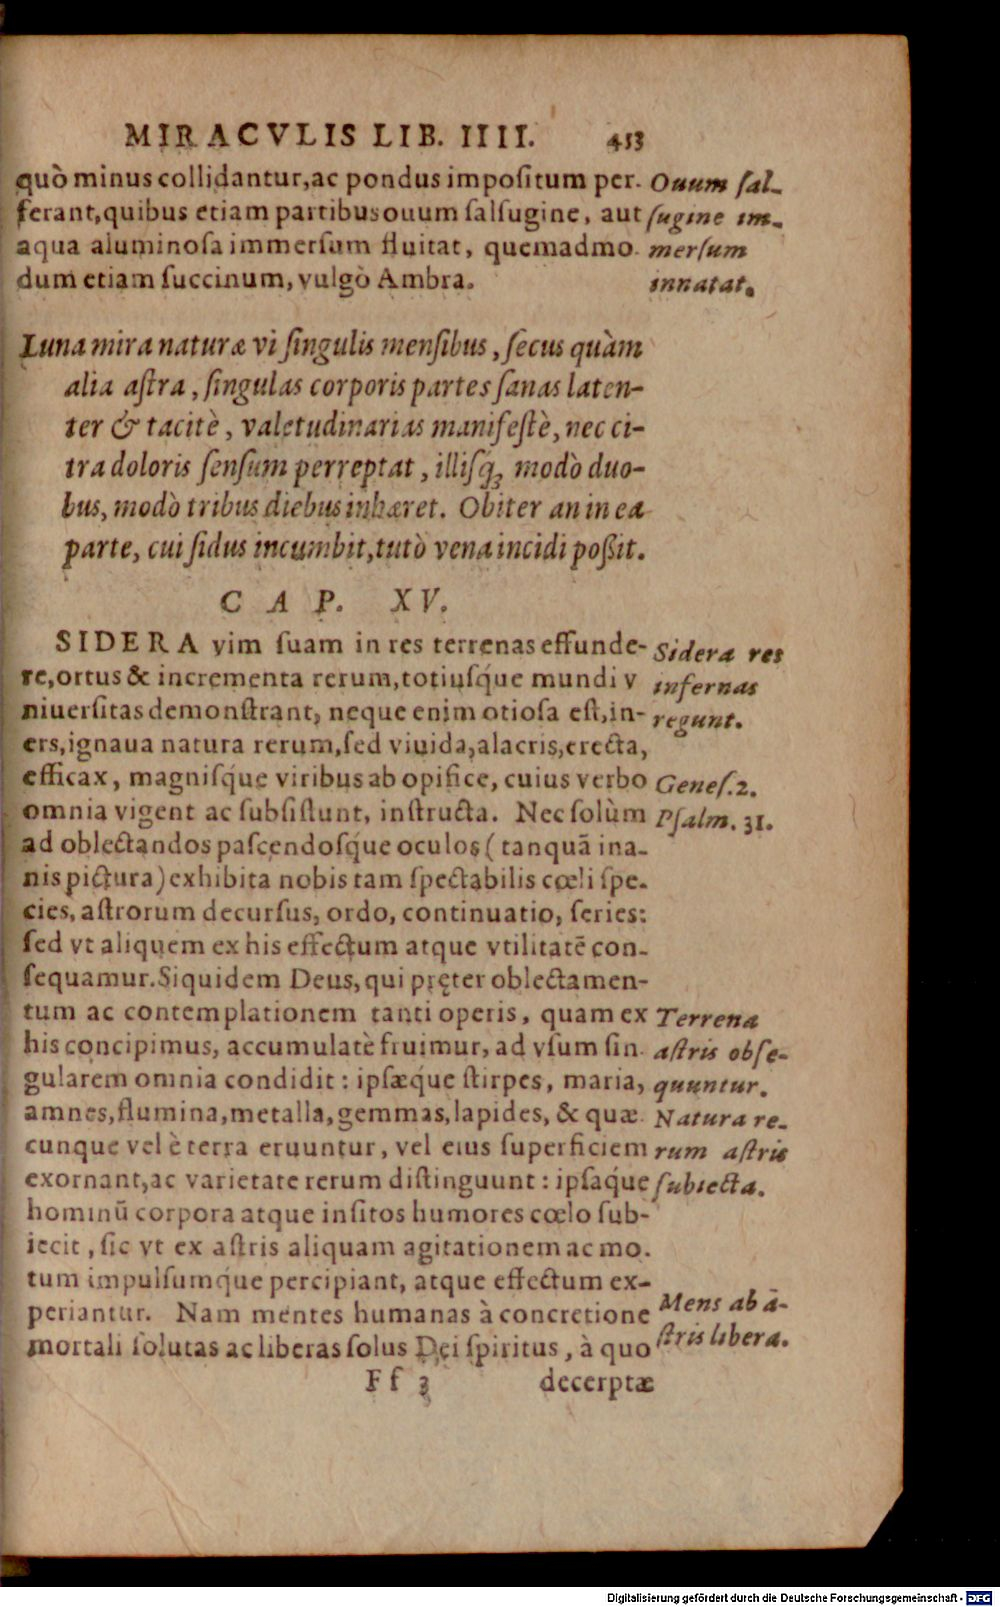 MIRACVLIS LIB. IIII. 453
quò minus collidantur, ac pondus impoſitum per-
ferant, quibus etiam partibus ouum ſalſugine, aut
aqua aluminoſa immerſum fluitat, quemadmo-
dum etiam ſuccinum, vulgò Ambra.
Ouum ſal-
ſugine im-
merſum
innatat.
Luna mira naturæ vi ſingulis menſibus, ſecus quàm
alia aſtra, ſingulas corporis partes ſanas laten-
ter & tacitè, valetudinarias manifeſtè, nec ci-
tra doloris ſenſum perreptat, illiſq́; modò duo-
bus, modò tribus diebus inhæret. Obiter an in ea
parte, cui ſidus incumbit, tutò vena incidi poßit.
CAP. XV.
SIDERA vim ſuam in res terrenas effunde-
re, ortus & incrementa rerum, totiuſq́ue mundi v
niuerſitas demonſtrant, neque enim otioſa eſt, in-
ers, ignaua natura rerum, ſed viuida, alacris, erecta,
efficax, magniſq́ue viribus ab opifice, cuius verbo
omnia vigent ac ſubſiſtunt, inſtructa. Nec ſolùm
ad oblectandos paſcendoſq́ue oculos (tanquã ina-
nis pictura) exhibita nobis tam ſpectabilis cœli ſpe-
cies, aſtrorum decurſus, ordo, continuatio, ſeries:
ſed vt aliquem ex his effectum atque vtilitatẽ con-
ſequamur. Siquidem Deus, qui pręter oblectamen-
tum ac contemplationem tanti operis, quam ex
his concipimus, accumulatè fruimur, ad vſum ſin-
gularem omnia condidit: ipſæq́ue ſtirpes, maria,
amnes, flumina, metalla, gemmas, lapides, & quæ-
cunque vel è terra eruuntur, vel eius ſuperficiem
exornant, ac varietate rerum diſtinguunt: ipſaq́ue
hominũ corpora atque inſitos humores cœlo ſub-
iecit, ſic vt ex aſtris aliquam agitationem ac mo-
tum impulſumq́ue percipiant, atque effectum ex-
periantur. Nam mentes humanas à concretione
mortali ſolutas ac liberas ſolus Dei ſpiritus, à quo
Sidera res
infernas
regunt.
Geneſ. 2.
Pſalm. 31.
Terrena
aſtris obſe-
quuntur.
Natura re-
rum aſtris
ſubiecta.
Mens ab a-
ſtris libera.
Ff 3 decerptæ
Digitalisierung gefördert durch die Deutsche Forschungsgemeinschaft - DFG